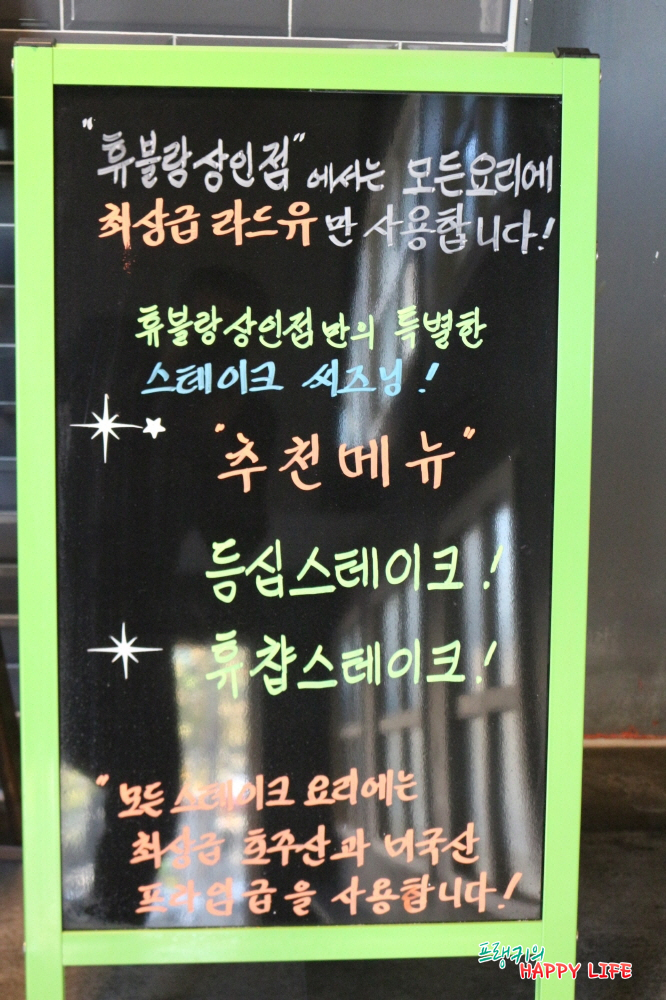 "휴블랑상인점"에서는 모든요리에
최상급 라드유만 사용합니다!
휴블랑상인점만의 특별한
스테이크 씨즈닝!
"추천메뉴"
등심스테이크!
휴챱스테이크!
"모든 스테이크 요리에는
최상급 호주산과 미국산
프라임급을 사용합니다!
프랭키의
HAPPY LIFE